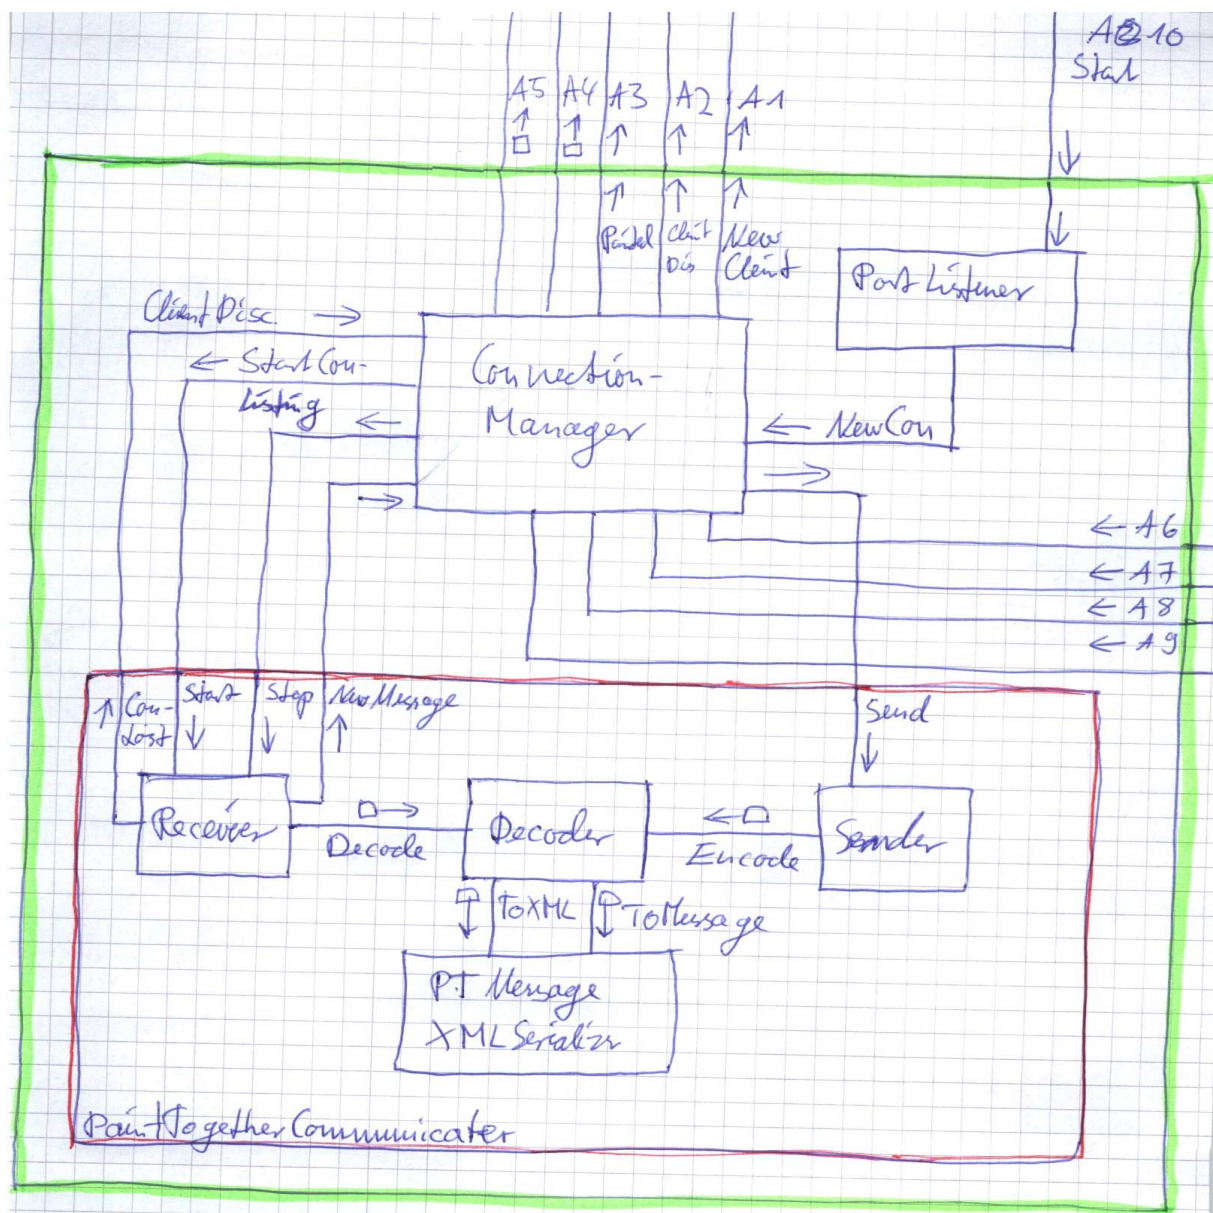 A10
Start
A5 A4 A3 A2 A1
Painted
Client
Dis
New
Client
Port Listener
Client Disc.
StartCon-
Listing
Connection-
Manager
NewCon
A6
A7
A8
A9
Con-
Lost
Start
Stop
NewMessage
Send
Receiver
Decode
Decoder
Encode
Sender
ToXML
ToMessage
PT Message
XMLSerializr
PaintTogetherCommunicater